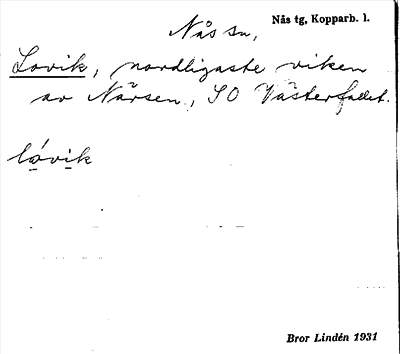 Nås sn,
Nås tg, Kopparb. l.
Lovik, nordligaste viken
av Närsen, SO Västerfallet.
lóvik
Bror Lindén 1931